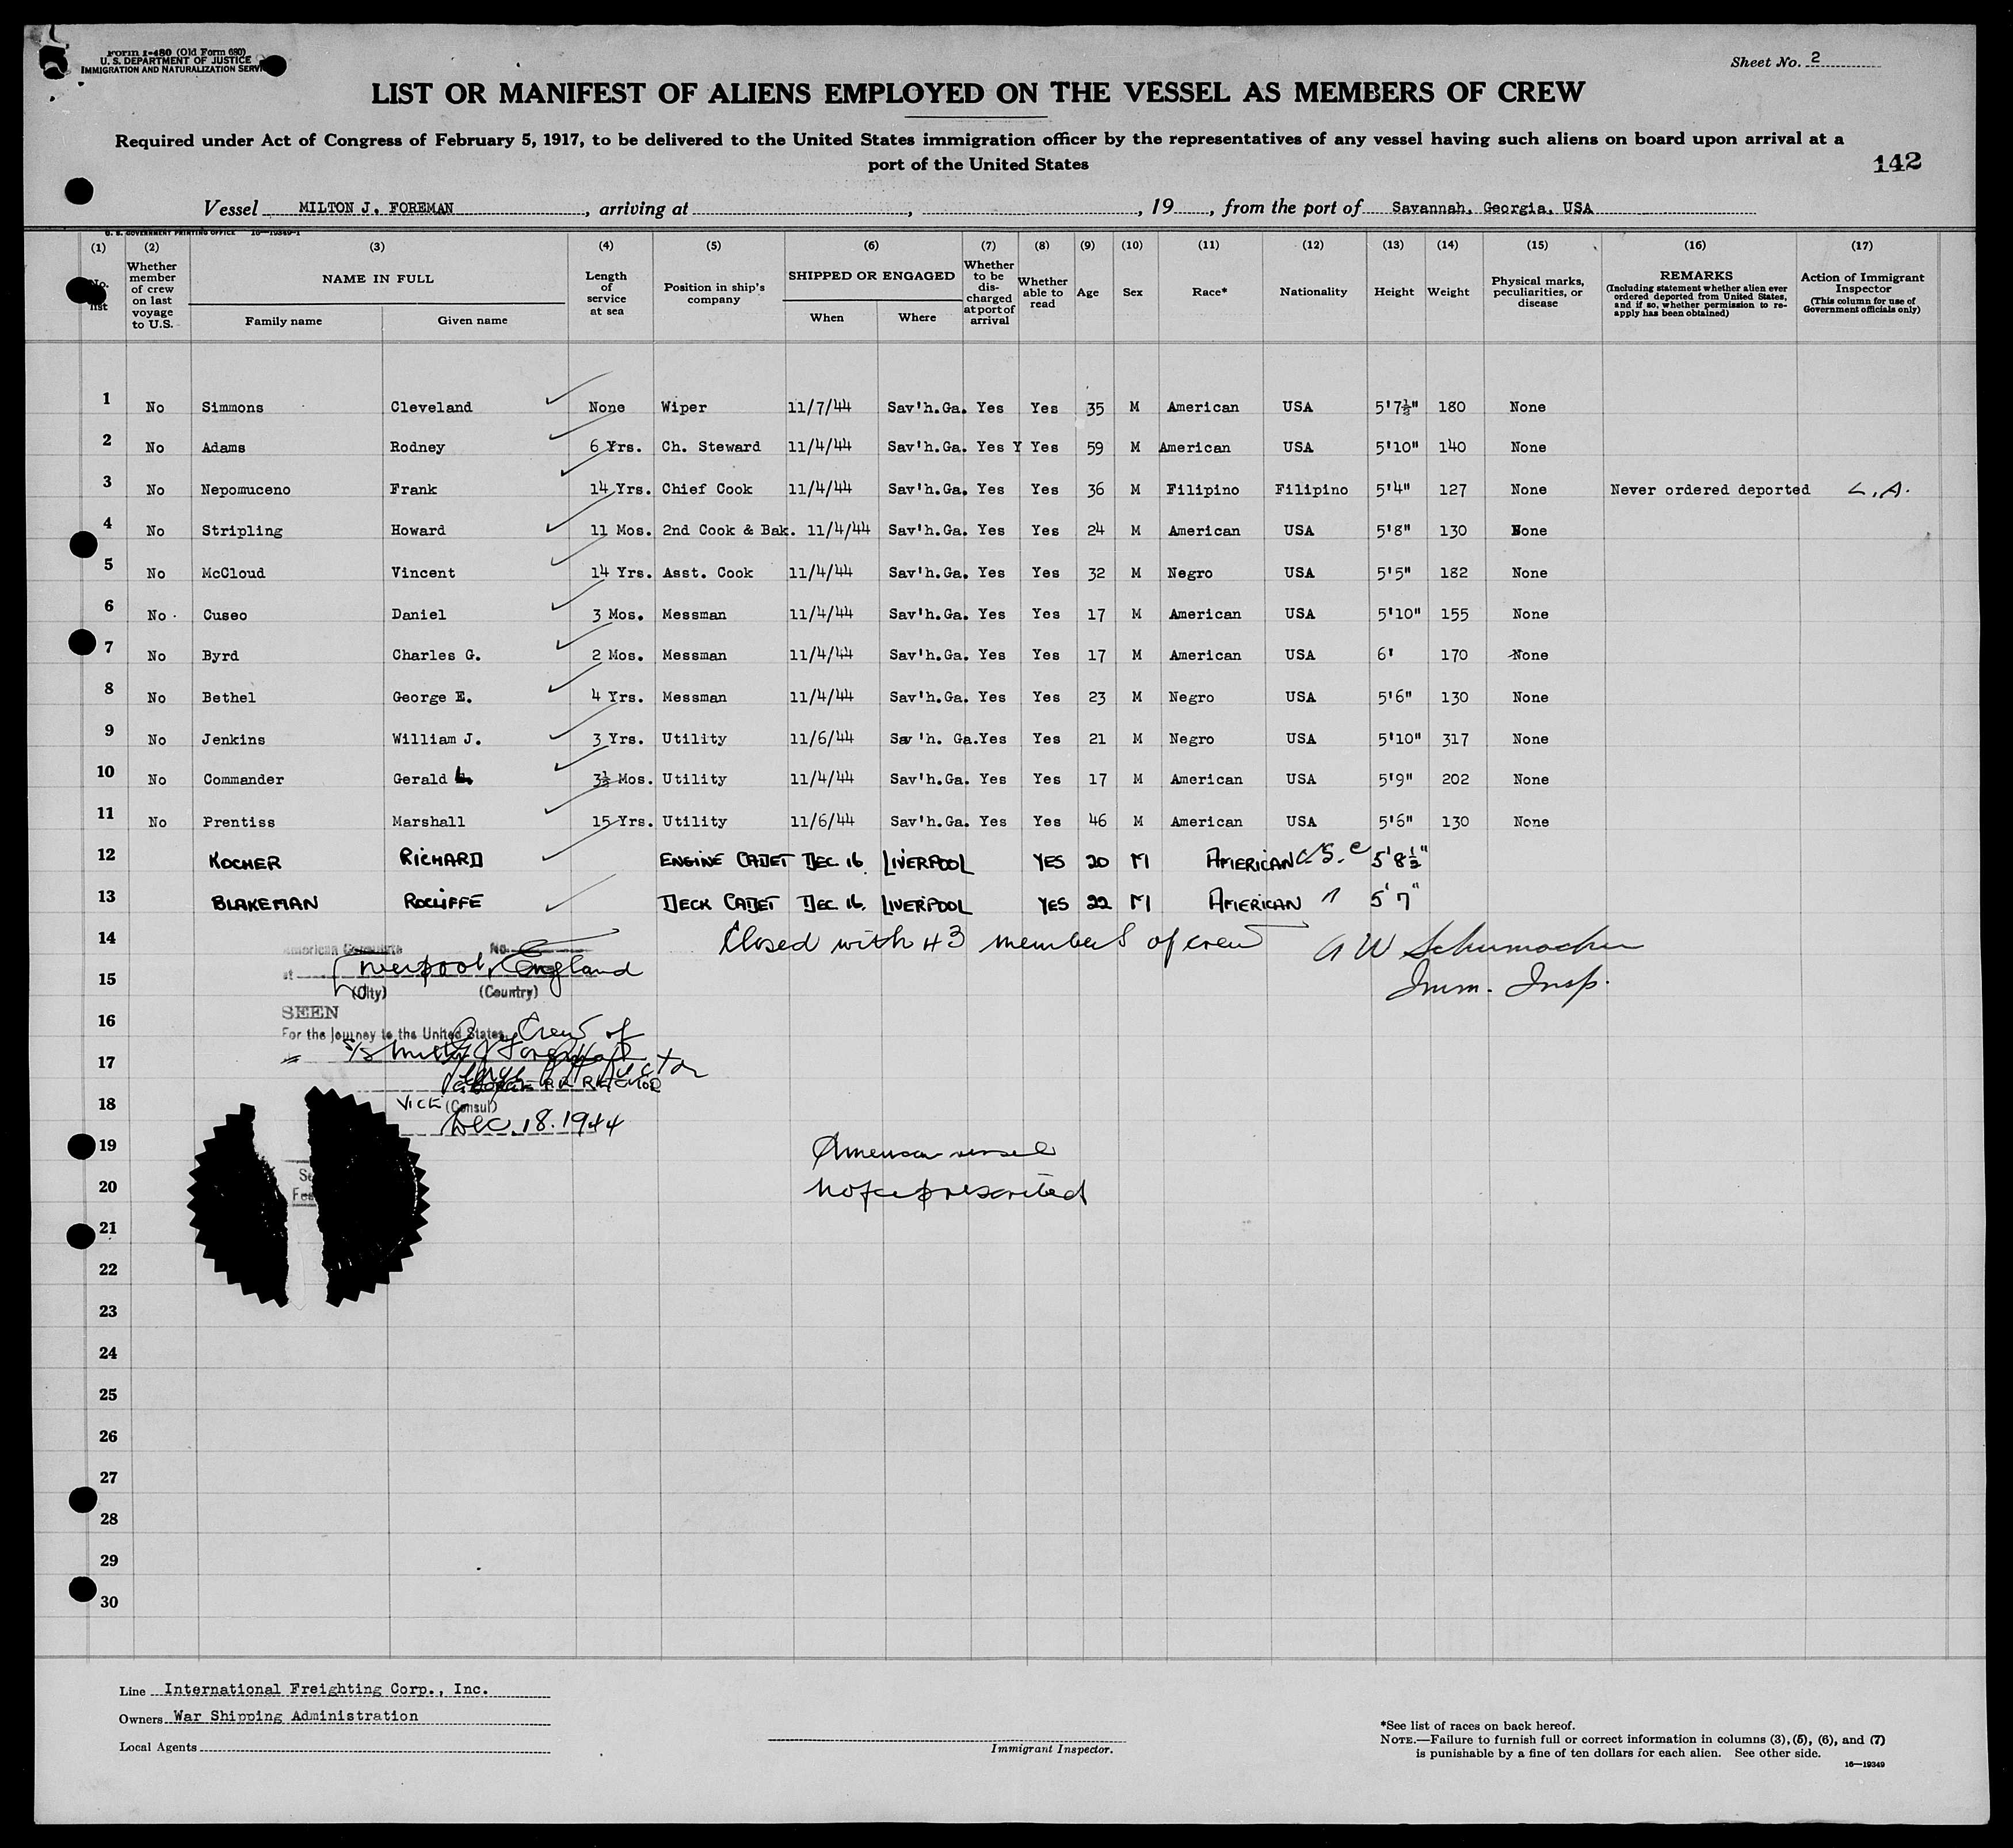 Form I-480 (Old Form 680)
U. S. DEPARTMENT OF JUSTICE
IMMIGRATION AND NATURALIZATION SERVICE
Sheet No. 2
LIST OR MANIFEST OF ALIENS EMPLOYED ON THE VESSEL AS MEMBERS OF CREW
Required under Act of Congress of February 5, 1917, to be delivered to the United States immigration officer by the representatives of any vessel having such aliens on board upon arrival at a
port of the United States
142
Vessel MILTON J. FOREMAN, arriving at , , 19 , from the port of Savannah, Georgia, USA
U. S. GOVERNMENT PRINTING OFFICE 16—19349-1
(1) (2) (3) (4) (5) (6) (7) (8) (9) (10) (11) (12) (13) (14) (15) (16) (17)
No. list
Whether member of crew on last voyage to U.S.
NAME IN FULL
Family name
Given name
Length of service at sea
Position in ship's company
SHIPPED OR ENGAGED
When
Where
Whether to be discharged at port of arrival
Whether able to read
Age
Sex
Race*
Nationality
Height
Weight
Physical marks, peculiarities, or disease
REMARKS
(Including statement whether alien ever ordered deported from United States, and if so, whether permission to re-apply has been obtained)
Action of Immigrant Inspector
(This column for use of Government officials only)
1 No Simmons Cleveland None Wiper 11/7/44 Sav'h.Ga. Yes Yes 35 M American USA 5'7½" 180 None
2 No Adams Rodney 6 Yrs. Ch. Steward 11/4/44 Sav'h.Ga. Yes Y Yes 59 M American USA 5'10" 140 None
3 No Nepomuceno Frank 14 Yrs. Chief Cook 11/4/44 Sav'h.Ga. Yes Yes 36 M Filipino Filipino 5'4" 127 None Never ordered deported L.A.
4 No Stripling Howard 11 Mos. 2nd Cook & Bak. 11/4/44 Sav'h.Ga. Yes Yes 24 M American USA 5'8" 130 None
5 No McCloud Vincent 14 Yrs. Asst. Cook 11/4/44 Sav'h.Ga. Yes Yes 32 M Negro USA 5'5" 182 None
6 No Cuseo Daniel 3 Mos. Messman 11/4/44 Sav'h.Ga. Yes Yes 17 M American USA 5'10" 155 None
7 No Byrd Charles G. 2 Mos. Messman 11/4/44 Sav'h.Ga. Yes Yes 17 M American USA 6' 170 None
8 No Bethel George E. 4 Yrs. Messman 11/4/44 Sav'h.Ga. Yes Yes 23 M Negro USA 5'6" 130 None
9 No Jenkins William J. 3 Yrs. Utility 11/6/44 Sav'h. Ga. Yes Yes 21 M Negro USA 5'10" 317 None
10 No Commander Gerald L. 3½ Mos. Utility 11/4/44 Sav'h.Ga. Yes Yes 17 M American USA 5'9" 202 None
11 No Prentiss Marshall 15 Yrs. Utility 11/6/44 Sav'h.Ga. Yes Yes 46 M American USA 5'6" 130 None
12 KOCHER RICHARD ENGINE CADET DEC 16. LIVERPOOL YES 20 M AMERICAN U.S.C 5'8½"
13 BLAKEMAN ROCLIFFE DECK CADET DEC 16. LIVERPOOL YES 22 M AMERICAN " 5'7"
14 Closed with 43 members of crew A W Schumacher
American Consulate No.
at Liverpool, England
15 Imm. Insp.
(City) (Country)
SEEN
16
For the journey to the United States, Crew of
17
GEORGE P.R. RECTOR
18 VICE (Consul)
Dec. 18. 1944
19 American vessel
20
21
22
23
24
25
26
27
28
29
30
Line International Freighting Corp., Inc.
Owners War Shipping Administration
Local Agents
Immigrant Inspector.
*See list of races on back hereof.
NOTE.—Failure to furnish full or correct information in columns (3), (5), (6), and (7)
is punishable by a fine of ten dollars for each alien. See other side.
16—19349